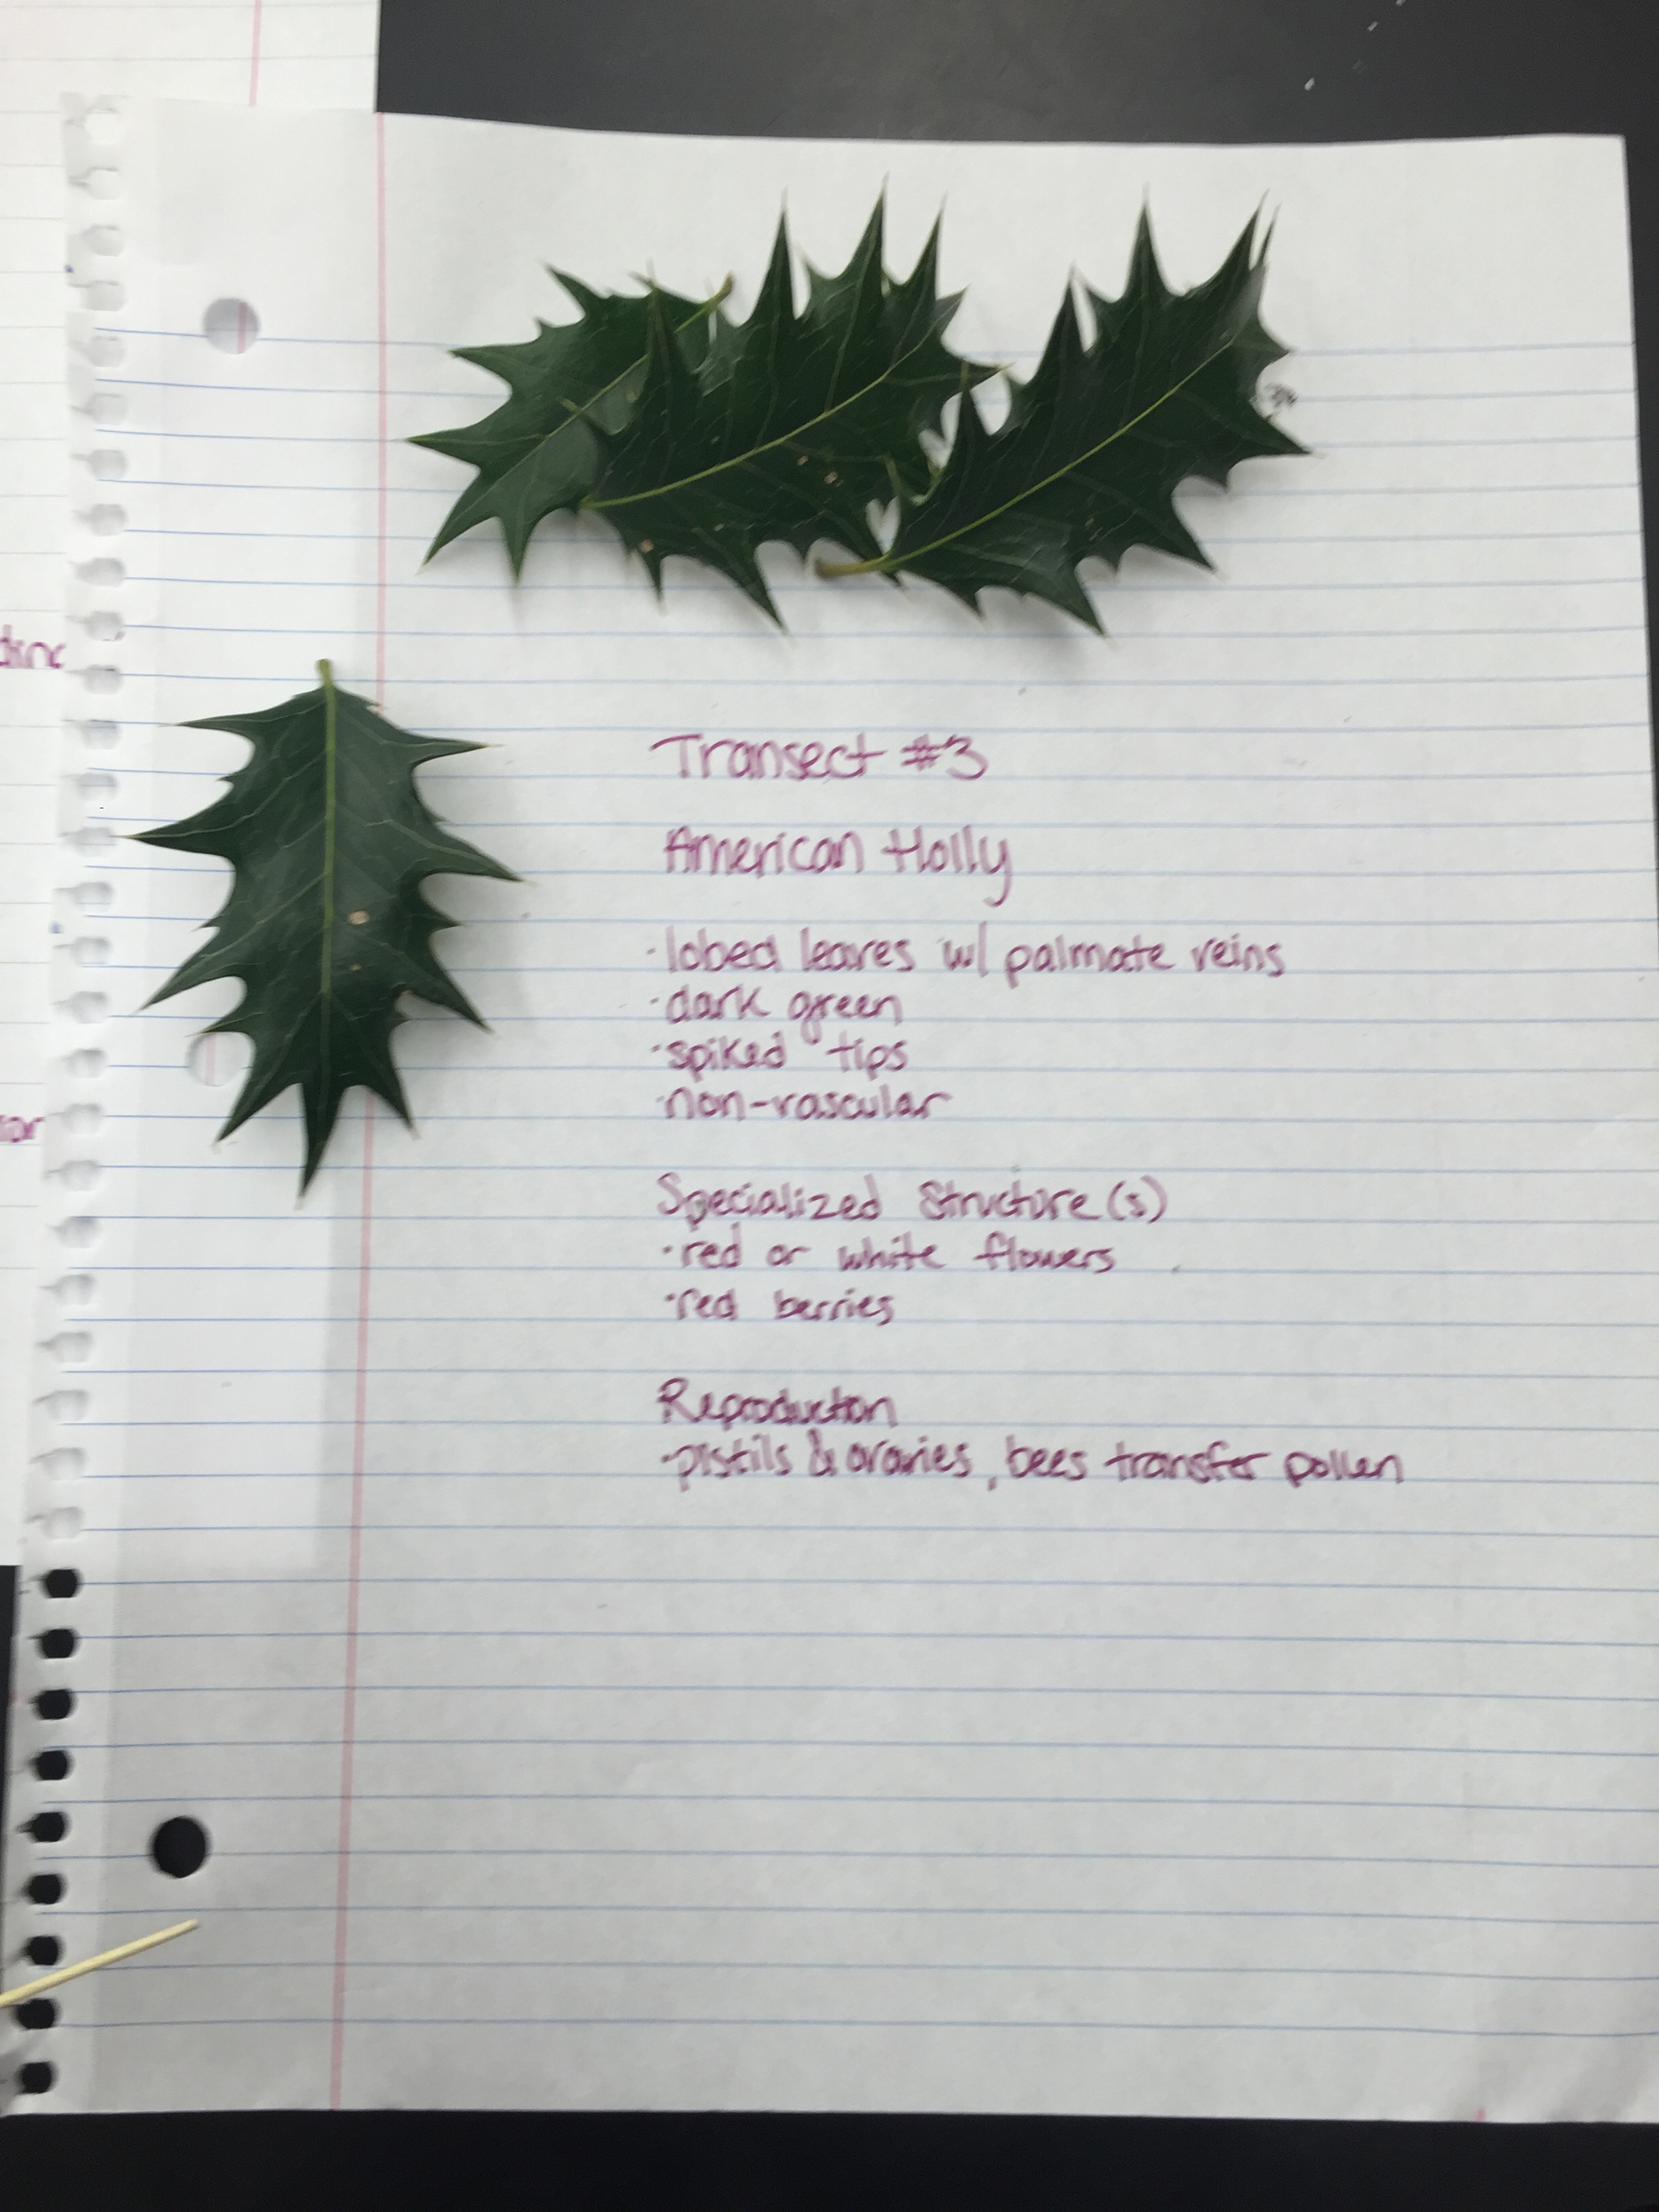 Transect #3
American Holly
·lobed leaves w/ palmate veins
·dark green
·spiked tips
·non-vascular
Specialized Structure(s)
·red or white flowers
·red berries
Reproduction
·pistils & ovaries, bees transfer pollen